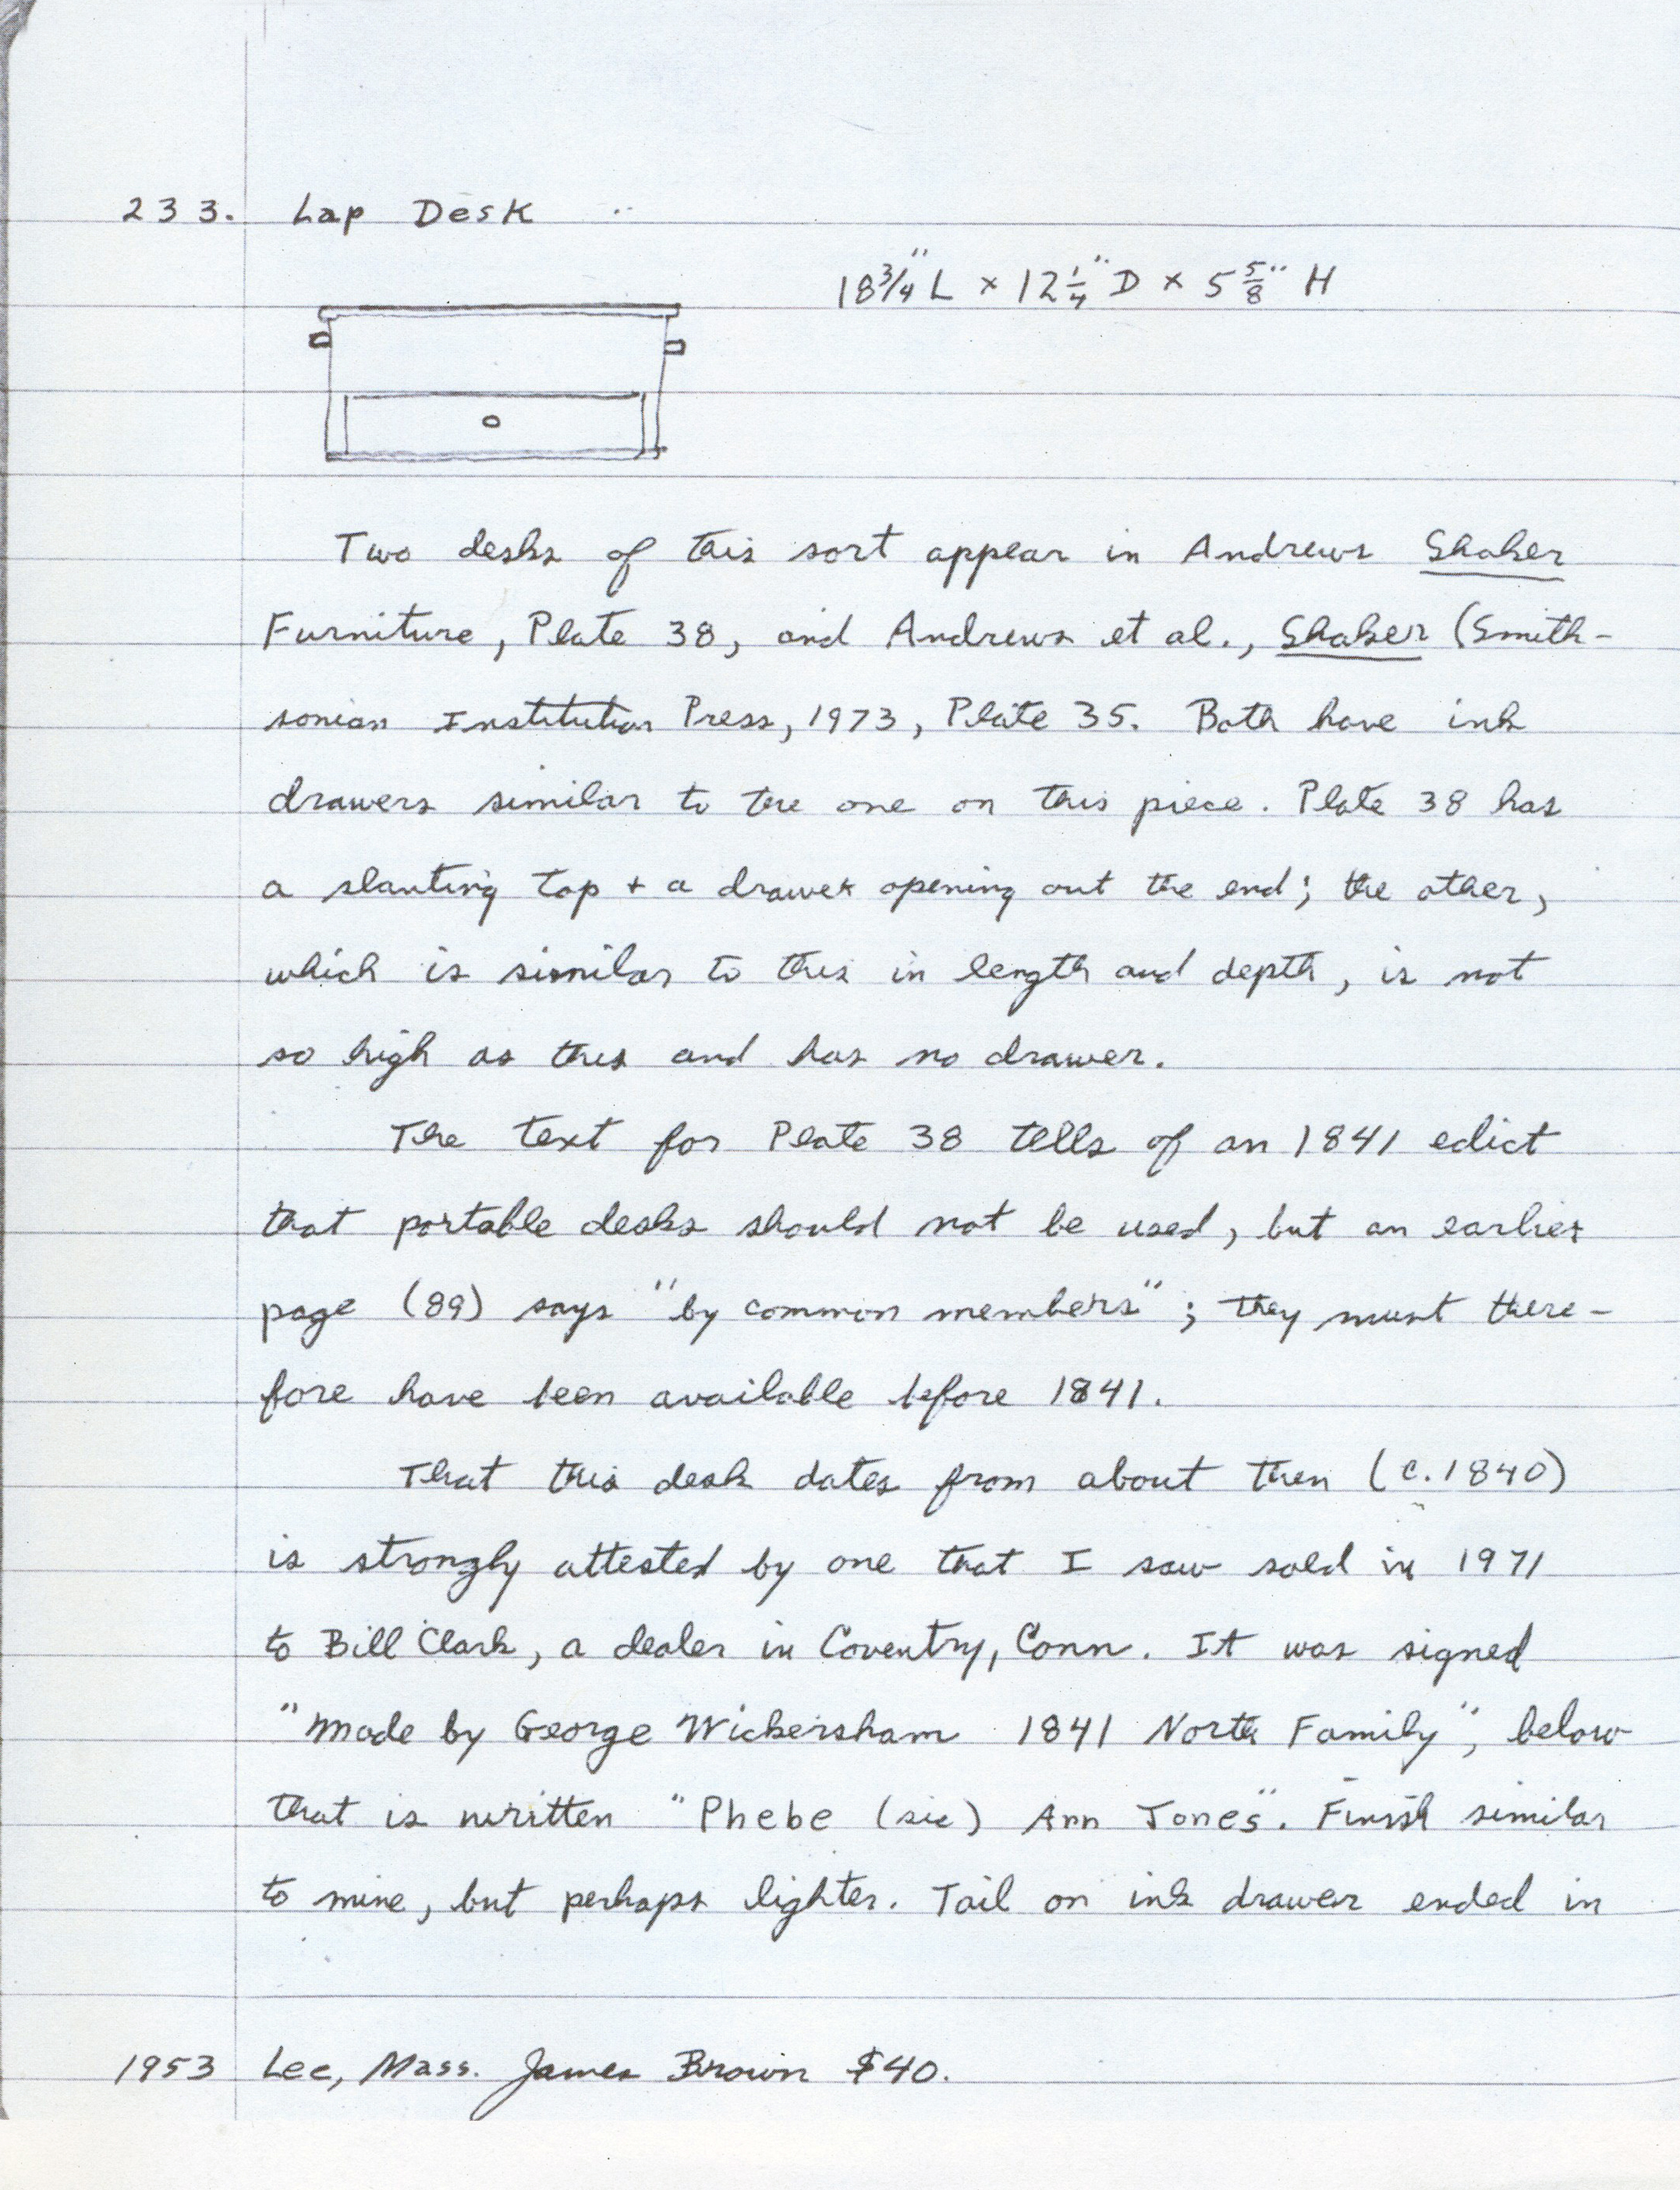 233. Lap Desk
18 3/4" L x 12 1/4" D x 5 5/8" H
Two desks of this sort appear in Andrews Shaker
Furniture, Plate 38, and Andrews et al., Shaker (Smith-
sonian Institution Press, 1973, Plate 35. Both have ink
drawers similar to the one on this piece. Plate 38 has
a slanting top + a drawer opening out the end; the other,
which is similar to this in length and depth, is not
so high as this and has no drawer.
The text for Plate 38 tells of an 1841 edict
that portable desks should not be used, but an earlier
page (89) says "by common members"; they must there-
fore have been available before 1841.
That this desk dates from about then (c. 1840)
is strongly attested by one that I saw sold in 1971
to Bill Clark, a dealer in Coventry, Conn. It was signed
"Made by George Wickersham 1841 North Family", below
that is written "Phebe (sic) Ann Jones". Finish similar
to mine, but perhaps lighter. Tail on ink drawer ended in
1953 Lee, Mass. James Brown $40.